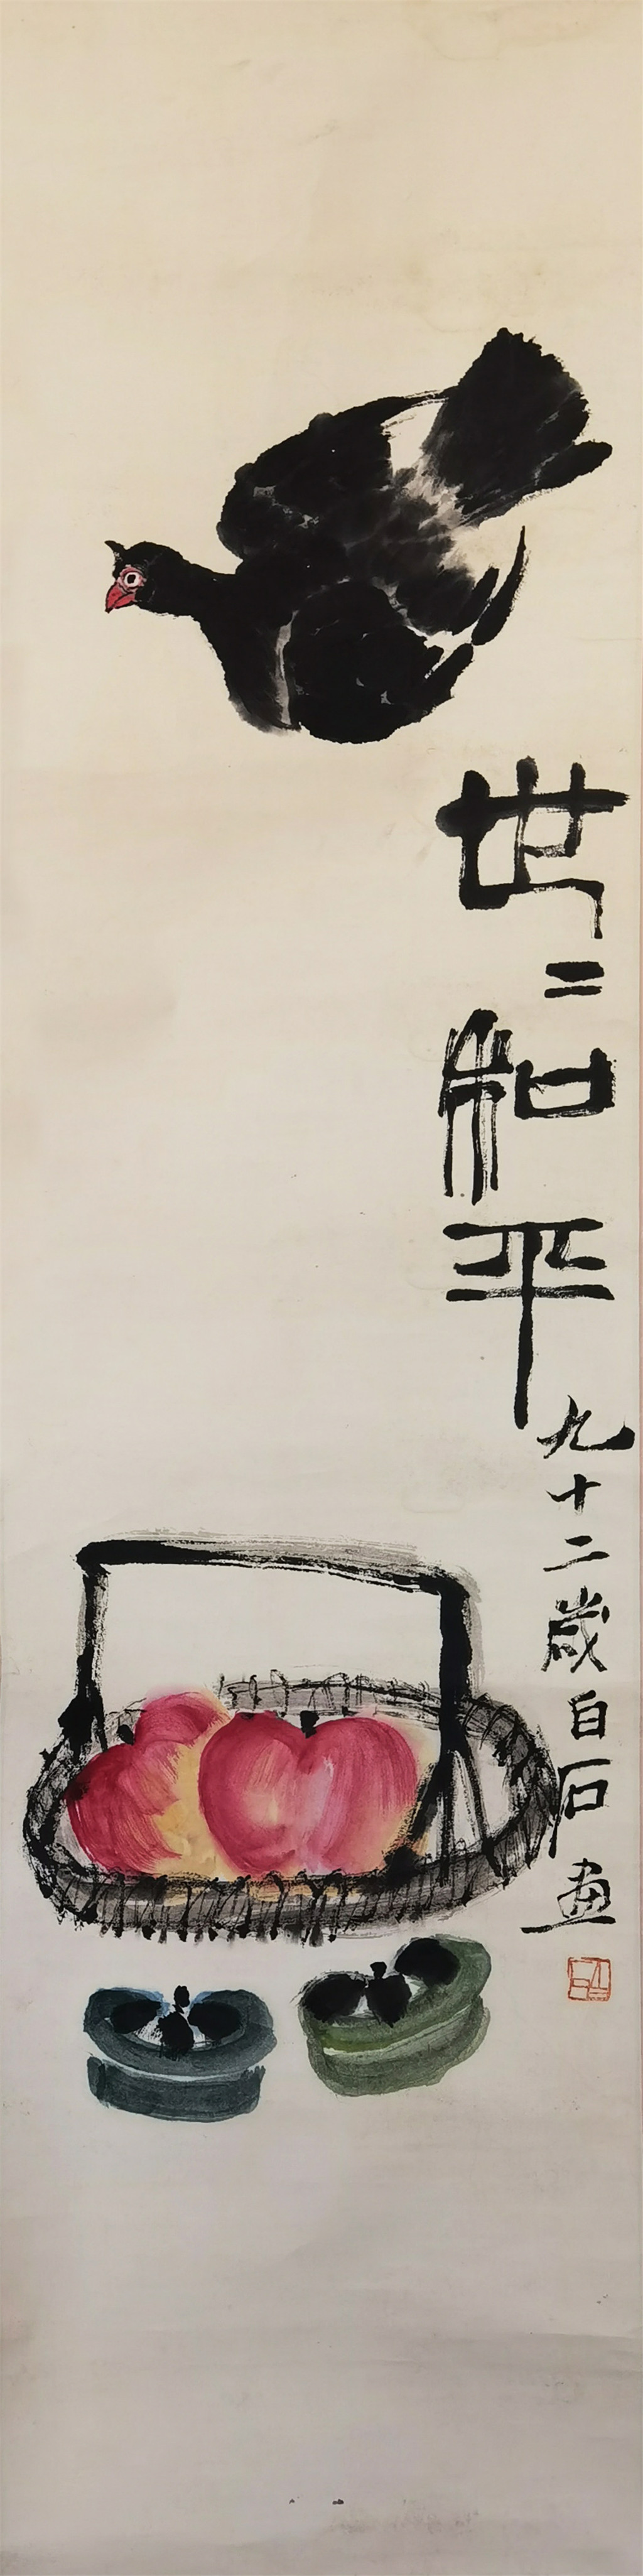 世二和平
九十二歲白石畫